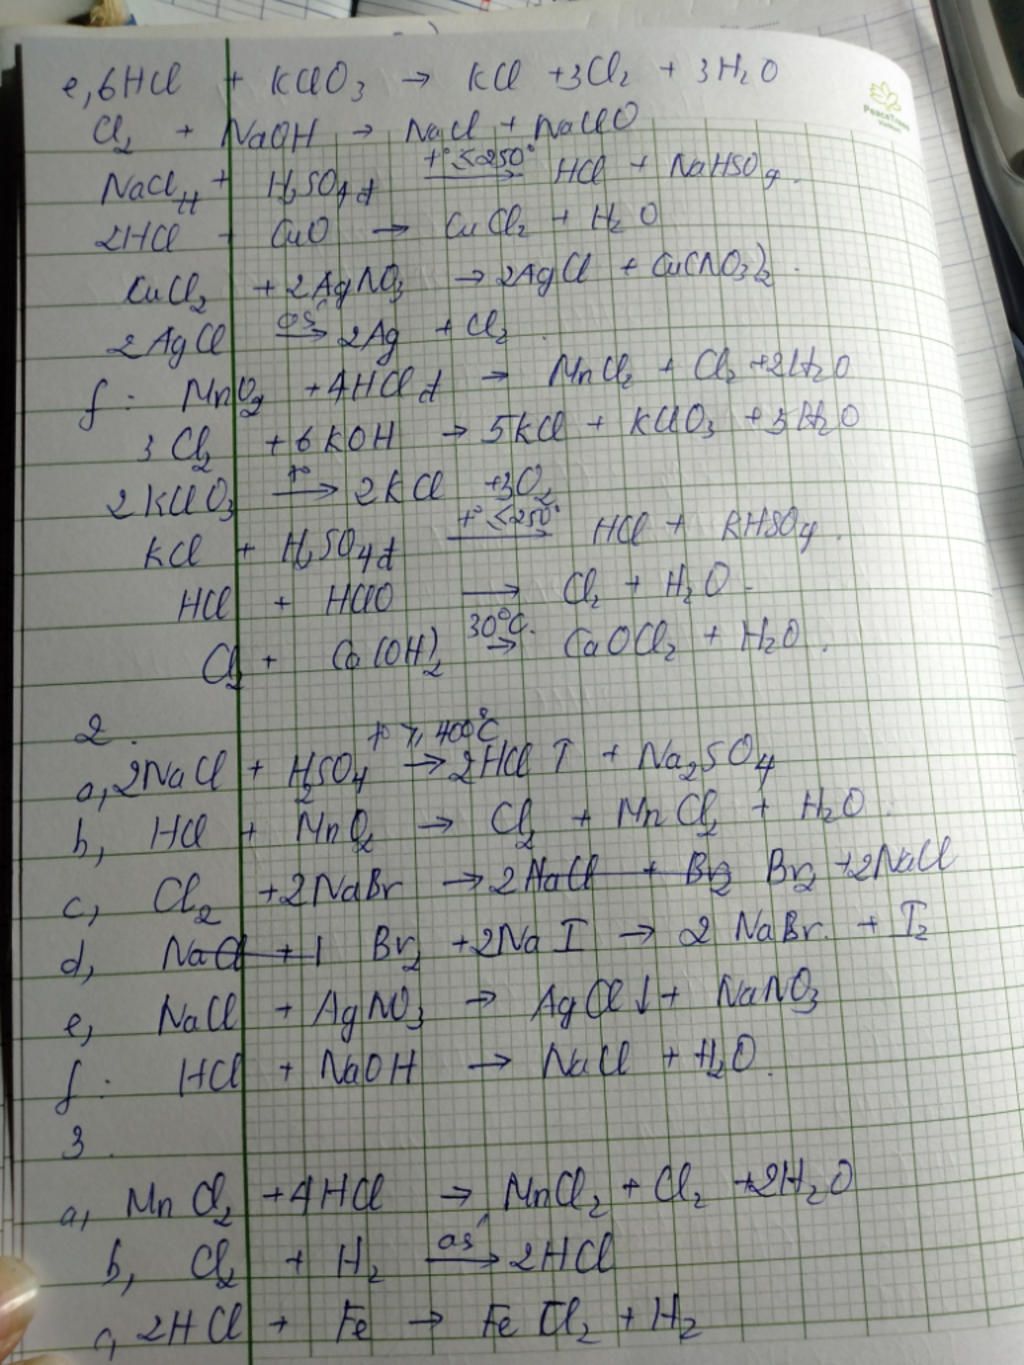 e, 6HCl + KClO3 → KCl + 3Cl2 + 3H2O
PeaceTrees
Vietnam
Cl2 + NaOH → NaCl + NaClO
NaCl tt + H2SO4 đ →(t° ≤ 250°) HCl + NaHSO4.
2HCl + CuO → CuCl2 + H2O
CuCl2 + 2AgNO3 → 2AgCl + Cu(NO3)2.
2AgCl →(as') 2Ag + Cl2.
f: MnO2 + 4HCl đ → MnCl2 + Cl2 + 2H2O
3Cl2 + 6KOH → 5KCl + KClO3 + 3H2O
2KClO3 →(t°) 2KCl + 3O2
KCl + H2SO4 đ →(t° ≤ 250°) HCl + KHSO4.
HCl + HClO → Cl2 + H2O.
Cl2 + Ca(OH)2 →(30°C.) CaOCl2 + H2O.
2.
a, 2NaCl + H2SO4 →(t° ≥ 400°C) 2HCl ↑ + Na2SO4
b, HCl + MnO2 → Cl2 + MnCl2 + H2O.
c, Cl2 + 2NaBr → 2NaCl + Br2 Br2 + 2NaCl
d, NaCl + I Br2 + 2NaI → 2NaBr + I2
e, NaCl + AgNO3 → AgCl↓ + NaNO3
f: HCl + NaOH → NaCl + H2O.
3.
a, MnCl2 + 4HCl → MnCl2 + Cl2 + 2H2O
b, Cl2 + H2 →(as') 2HCl
c, 2HCl + Fe → FeCl2 + H2